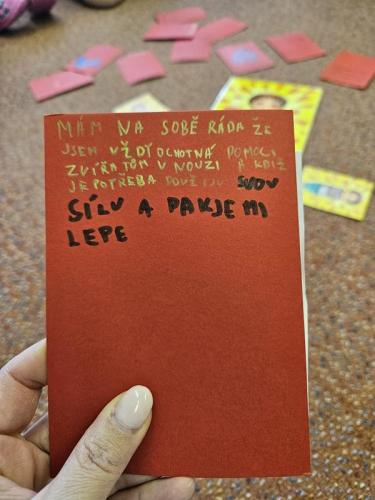 MÁM NA SOBĚ RÁDA ŽE
JSEM VŽDY OCHOTNÁ POMOCI
ZVÍŘATŮM V NOUZI A KDIŽ
JE POTŘEBA POUŽIJU SVOU
SÍLU A PAKJE MI
LEPE